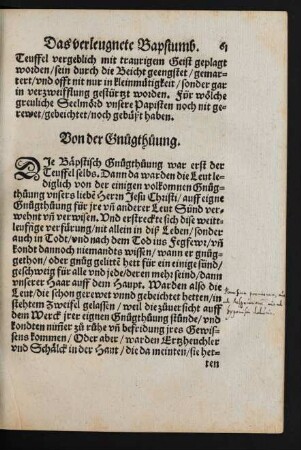 Das verleugnete Bapstumb. 61
Teuffel vergeblich mit traurigem Geist geplagt
worden/sein durch die Beicht geengstet/gemar-
tert/vnd offt nit nur in kleinmütigkeit/sonder gar
in verzweifflung gestürtzt worden. Für wölche
greuliche Seelmörd vnsere Papisten noch nit ge-
rewet/gebeichtet/noch gebüßt haben.
Von der Gnügthüung.
DIe Bäpstisch Gnügthüung war erst der
Teuffel selbs. Dann da warden die Leut le-
diglich von der einigen volkomnen Gnüg-
thüung vnsers liebē Herrn Jesu Christi/auff eigne
Gnügthüung für jre vñ anderer Leut Sünd ver-
wehnt vñ verwisen. Vnd erstreckte sich dise weit-
leuffige verfürung/nit allein in diß Leben/sonder
auch in Todt/vnd nach dem Tod ins Fegfewr/vñ
kondt dannoch niemandts wissen/wann er gnüg-
gethon/oder gnüg gelitē hett für ein einige sünd/
geschweig für alle vnd jede/deren mehr seind/dann
vnserer Haar auff dem Haupt. Warden also die
Leut/die schon gerewet vnnd gebeichtet hetten/in
stehtem Zweifel gelassen/weil die züuersicht auff
dem Werck jrer eignen Gnügthüung stünde/vnd
kondten niñer zu rühe vñ befreidung jres Gewis-
sens kommen/Oder aber/warden Ertzheuchler
vnd Schälck in der Haut/die da meinten/sie het-
ten